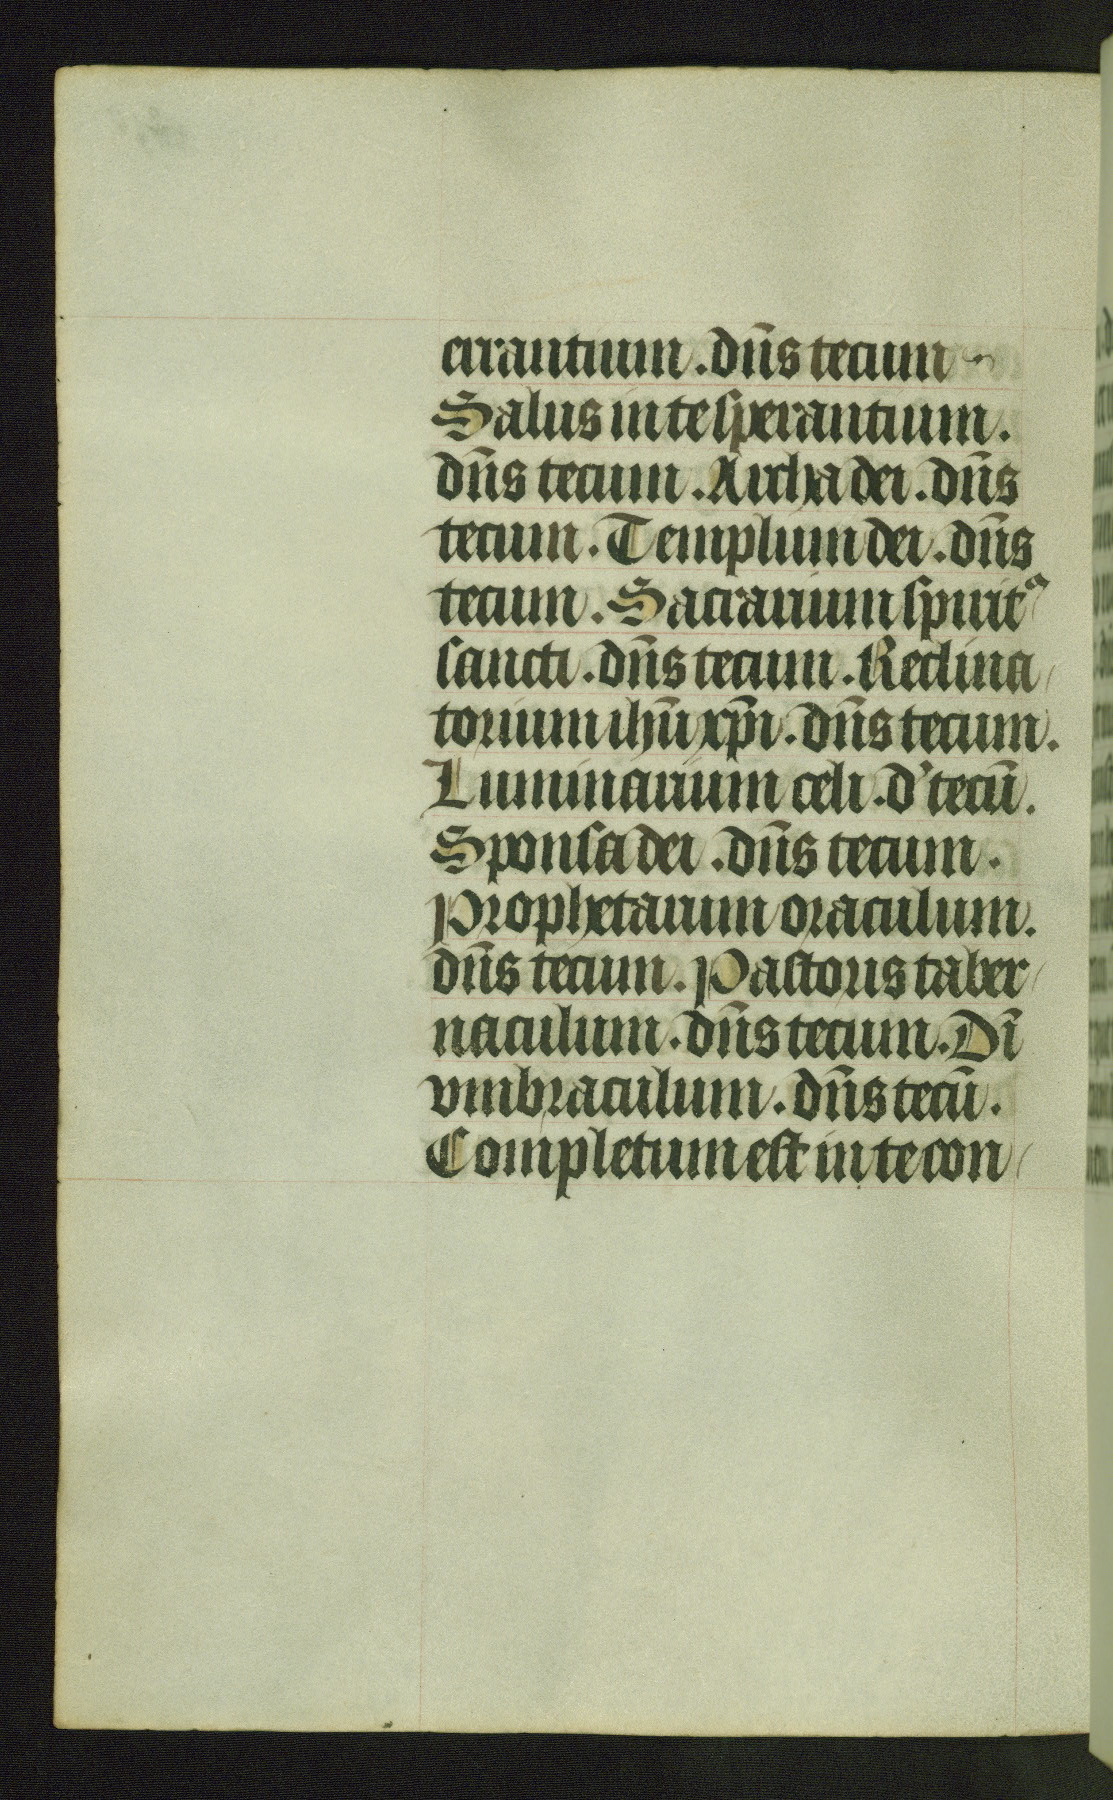 errantium . dn̄s tecum
Salus in te sperantium .
dn̄s tecum . Archa dei . dn̄s
tecum . Templum dei . dn̄s
tecum . Sacrarium spirit᾽
sancti . dn̄s tecum . Reclina
torium ihū xp̄i . dn̄s tecum .
Luminarium celi . d᾽ tecū .
Sponsa dei . dn̄s tecum .
Prophetarum oraculum .
dn̄s tecum . Pastoris taber
naculum . dn̄s tecum . Di
vmbraculum . dn̄s tecū .
Completum est in te con